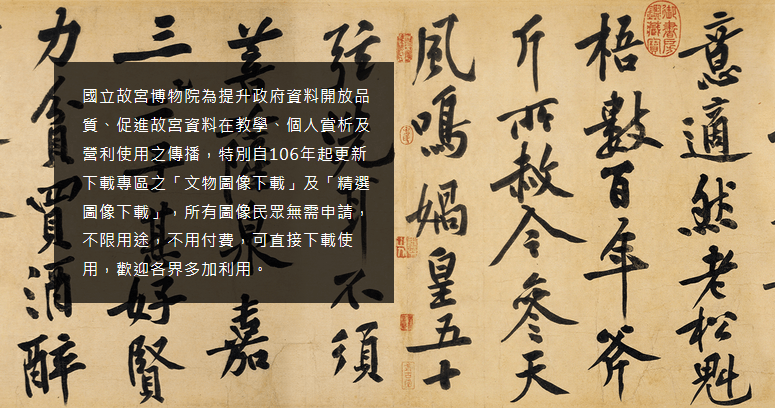 意適然老松魁
梧數百年斧
斤所赦今參天
風鳴媧皇五十
弦洗耳不須
菩薩泉嘉
三子甚好賢
力貧買酒醉
國立故宮博物院為提升政府資料開放品
質、促進故宮資料在教學、個人賞析及
營利使用之傳播，特別自106年起更新
下載專區之「文物圖像下載」及「精選
圖像下載」，所有圖像民眾無需申請，
不限用途，不用付費，可直接下載使
用，歡迎各界多加利用。